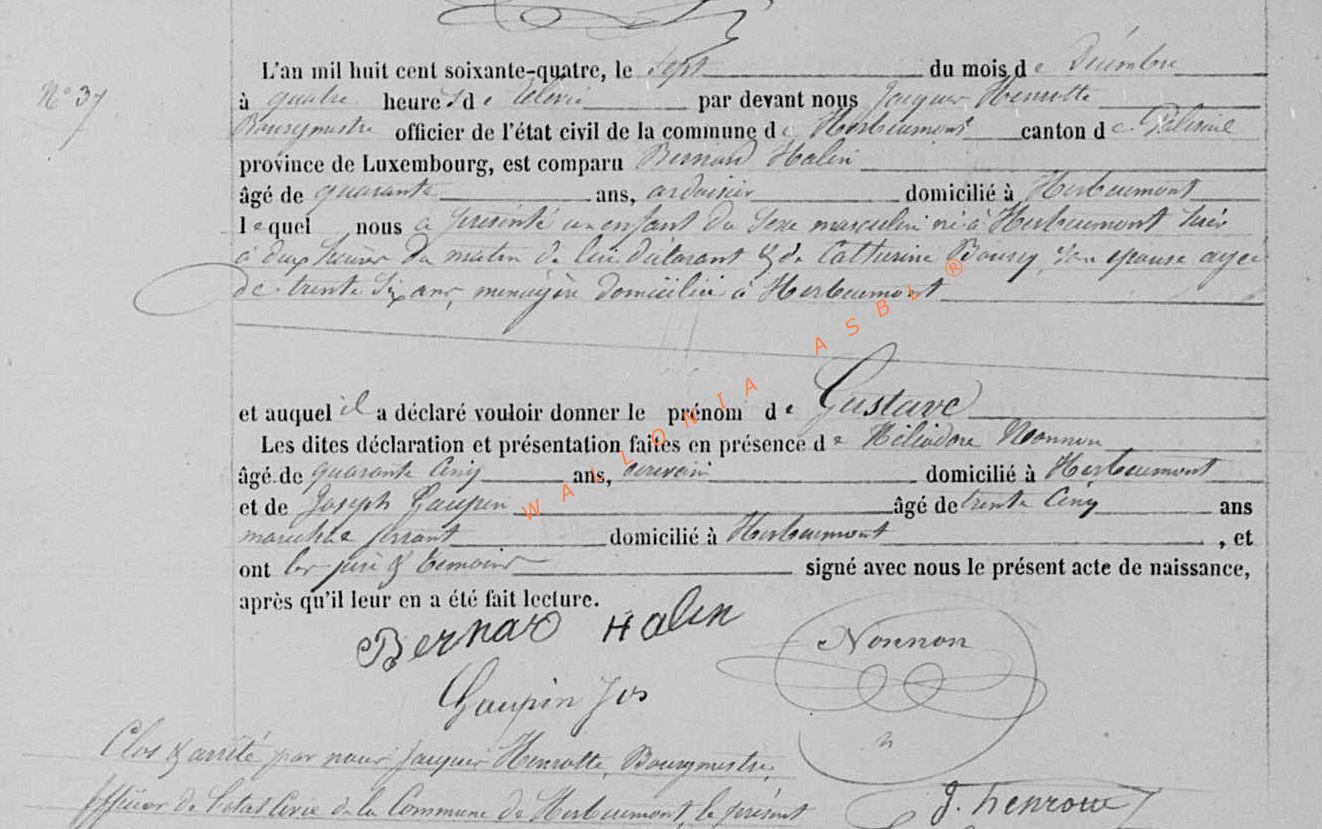 N° 37
L'an mil huit cent soixante-quatre, le Sept du mois de Décembre
à quatre heures de relevée par devant nous Jacques Henrotte
Bourgmestre officier de l'état civil de la commune de Herbeumont canton de Paliseul
province de Luxembourg, est comparu Bernard Halin
âgé de quarante ans, ardoisier domicilié à Herbeumont
lequel nous a présenté un enfant du sexe masculin né à Herbeumont hier
à deux heures du matin de lui déclarant & de Catherine Boursy, son épouse agée
de trente six ans, ménagère domiciliée à Herbeumont
et auquel il a déclaré vouloir donner le prénom de Gustave
Les dites déclaration et présentation faites en présence de Héliodore Nonnon
âgé de quarante cinq ans, domicilié à Herbeumont
et de Joseph Gaupin âgé de trente cinq ans
marechal ferrant domicilié à Herbeumont, et
ont les père & temoins signé avec nous le présent acte de naissance,
après qu'il leur en a été fait lecture.
Bernar Halin
Nonnon
Gaupin Jos
Clos & arrêté par nous Jacques Henrotte, Bourgmestre,
officier de l'etat civil de la Commune de Herbeumont, le présent
J. henrotte
WALLONIA ASBL ®